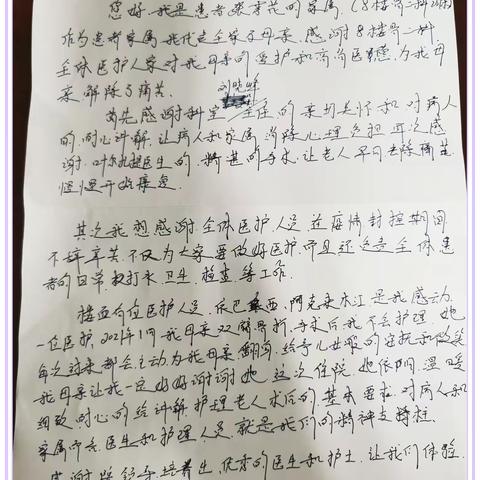 您好，我是患者 的家属，(8楼骨二科
作为患者家属我代表全家及母亲，感谢8楼骨二科，
全体医护人 对我母亲的爱护和高尚医德，为我母
亲，解除了痛苦。
刘晓峰
首先感谢科室 主任的亲切关怀和对病人
的，耐心讲解，让病人和家属消除心理负担，再次感
谢，叶 医生的，精湛的手术，让老人早日去除痛苦，
慢慢开始康复。
其次我想感谢全体医护人员，在疫情封控期间
不辞辛苦，不仅为大家要做好医护，而且还 全体患
者的日常 打水，卫生，检查，等工作。
楼面 位医护人员，依巴 西，阿克来木江是我感动
一位医护，2021年1月我母亲双 骨折，手术后我不会护理，她
每次过来都会主动为我母亲翻 ，给予儿女般的安抚和微笑
我母亲让我一定好好谢谢她，这次住院，她依 ，温暖
细致，耐心的给讲解，护理老人术后的，基本要求，对病人和
家属而言，医生和护理人员，就是我们的精神支持柱，
感谢 培养出，优秀的医生和护士，让我们体验